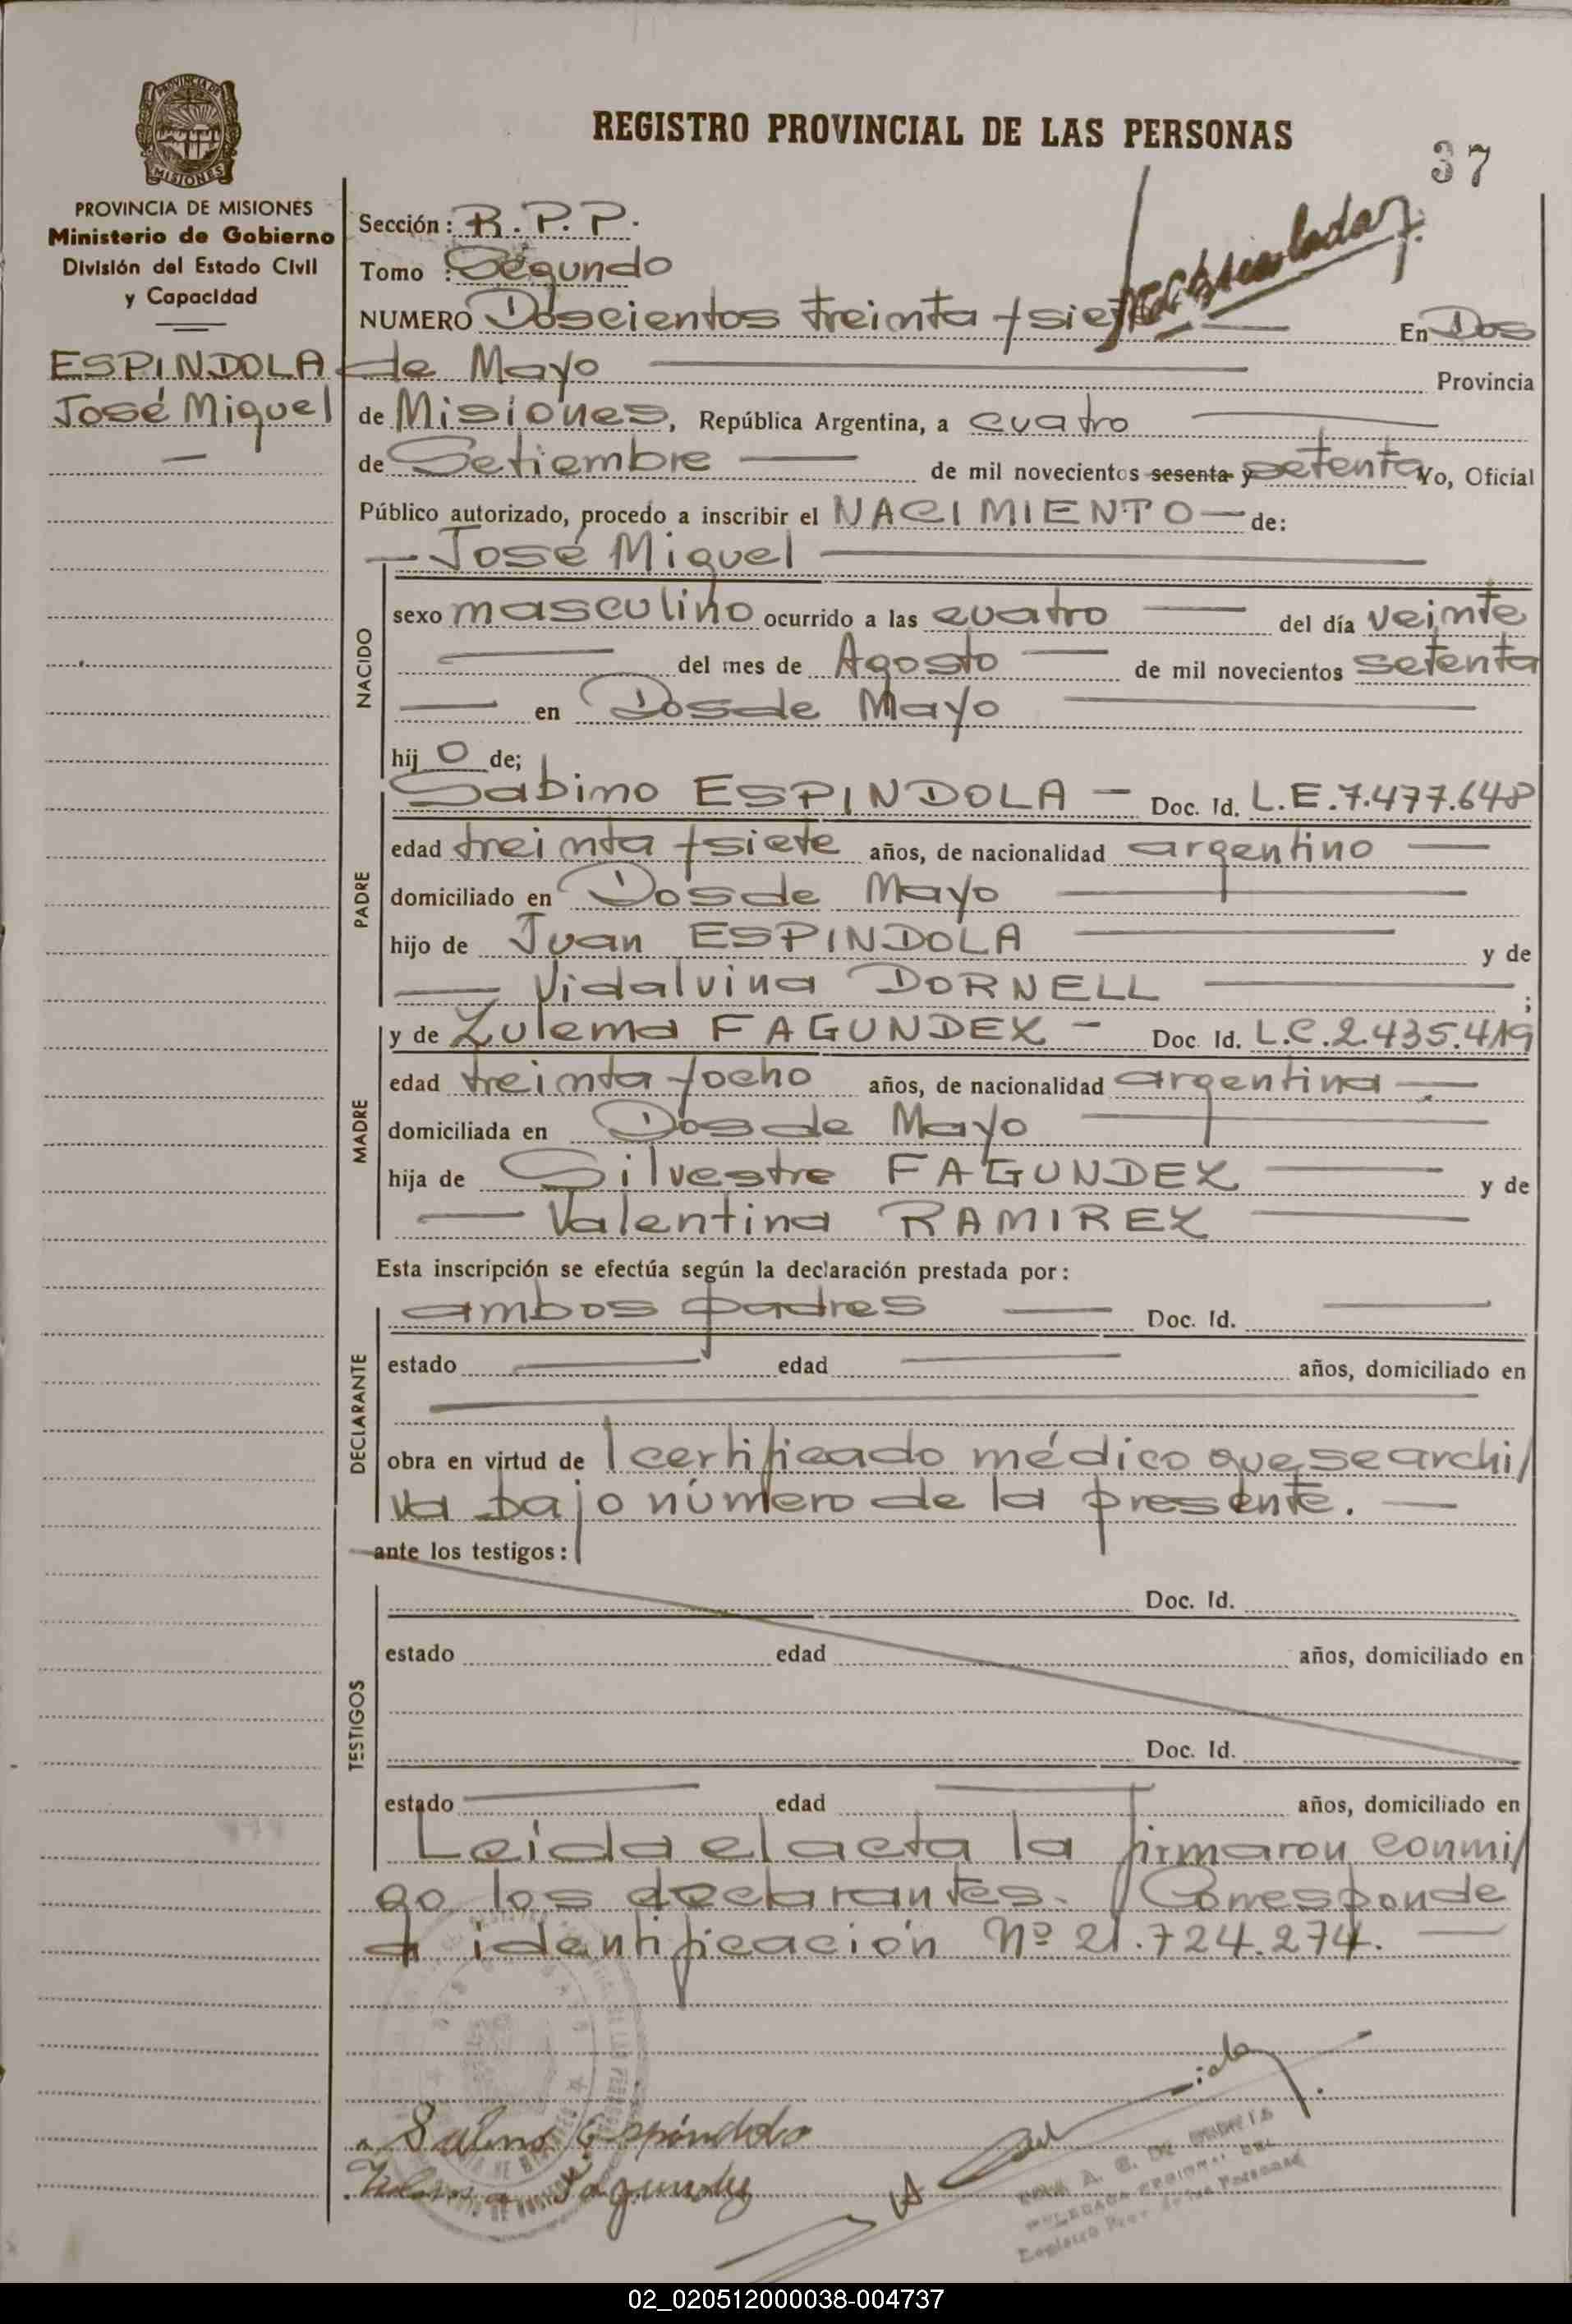 REGISTRO PROVINCIAL DE LAS PERSONAS
37
PROVINCIA DE MISIONES
Ministerio de Gobierno
División del Estado Civil
y Capacidad
ESPINDOLA
José Miguel
Sección: R.P.P.
Tomo: Segundo
NUMERO Doscientos treinta y siete En Dos
de Mayo Provincia
de Misiones, República Argentina, a cuatro
de Setiembre de mil novecientos sesenta y setenta Yo, Oficial
Público autorizado, procedo a inscribir el NACIMIENTO de:
José Miguel
NACIDO
sexo masculino ocurrido a las cuatro del día veinte
del mes de Agosto de mil novecientos setenta
en Dos de Mayo
hij o de;
PADRE
Sabino ESPINDOLA - Doc. Id. L.E.7.477.648
edad treinta y siete años, de nacionalidad argentino
domiciliado en Dos de Mayo
hijo de Juan ESPINDOLA y de
Vidalvina DORNELL ;
MADRE
y de Zulema FAGUNDEZ - Doc. Id. L.C.2.435.419
edad treinta y ocho años, de nacionalidad argentina
domiciliada en Dos de Mayo
hija de Silvestre FAGUNDEZ y de
Valentina RAMIREZ
Esta inscripción se efectúa según la declaración prestada por:
DECLARANTE
ambos padres Doc. Id.
estado edad años, domiciliado en
obra en virtud de 1 certificado médico que se archi/
va bajo número de la presente.
ante los testigos:
TESTIGOS
Doc. Id.
estado edad años, domiciliado en
Doc. Id.
estado edad años, domiciliado en
Leida el acta la firmaron conmi/
go los declarantes. Corresponde
a identificación Nº 21.724.274.
Sabino Espíndola
Zulema Fagundez
02_020512000038-004737